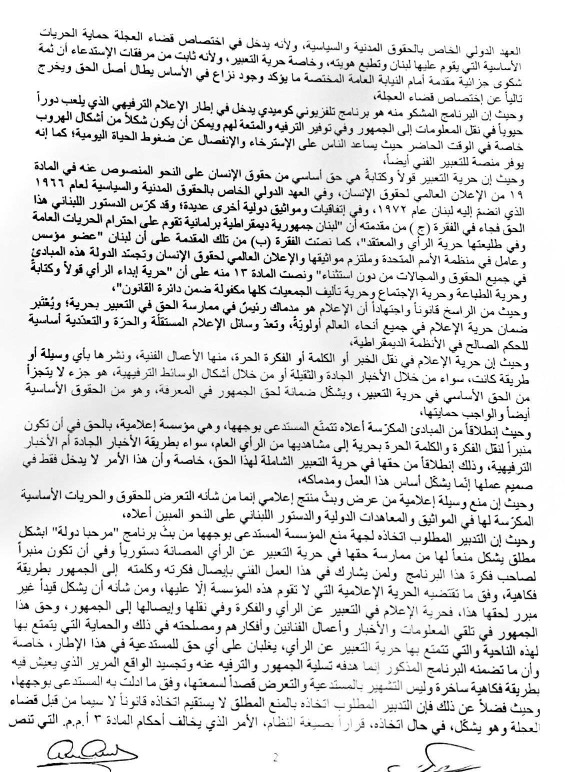 العهد الدولي الخاص بالحقوق المدنية والسياسية، ولأنه يدخل في اختصاص قضاء العجلة حماية الحريات
الأساسية التي يقوم عليها لبنان وتطبع هويته، وخاصة حرية التعبير، ولأنه ثابت من مرفقات الإستدعاء أن ثمة
شكوى جزائية مقدمة أمام النيابة العامة المختصة ما يؤكد وجود نزاع في الأساس يطال أصل الحق ويخرج
تالياً عن إختصاص قضاء العجلة،
وحيث إن البرنامج المشكو منه هو برنامج تلفزيوني كوميدي يدخل في إطار الإعلام الترفيهي الذي يلعب دوراً
حيوياً في نقل المعلومات إلى الجمهور وفي توفير الترفيه والمتعة لهم ويمكن أن يكون شكلاً من أشكال الهروب
خاصة في الوقت الحاضر حيث يساعد الناس على الإسترخاء والإنفصال عن ضغوط الحياة اليومية؛ كما إنه
يوفر منصة للتعبير الفني أيضاً،
وحيث إن حرية التعبير قولاً وكتابةً هي حق أساسي من حقوق الإنسان على النحو المنصوص عنه في المادة
١٩ من الإعلان العالمي لحقوق الإنسان، وفي العهد الدولي الخاص بالحقوق المدنية والسياسية لعام ١٩٦٦
الذي انضمّ إليه لبنان عام ١٩٧٢، وفي إتفاقيات ومواثيق دولية أخرى عديدة؛ وقد كرّس الدستور اللبناني هذا
الحق فجاء في الفقرة (ج) من مقدمته أن "لبنان جمهورية ديمقراطية برلمانية تقوم على احترام الحريات العامة
وفي طليعتها حرية الرأي والمعتقد"، كما نصّت الفقرة (ب) من تلك المقدمة على أن لبنان "عضو مؤسس
وعامل في منظمة الأمم المتحدة وملتزم مواثيقها والإعلان العالمي لحقوق الإنسان وتجسّد الدولة هذه المبادئ
في جميع الحقوق والمجالات من دون استثناء" ونصت المادة ١٣ منه على أن "حرية إبداء الرأي قولاً وكتابةً
وحرية الطباعة وحرية الإجتماع وحرية تأليف الجمعيات كلها مكفولة ضمن دائرة القانون"،
وحيث من الراسخ قانوناً واجتهاداً أن الإعلام هو مدماك رئيسٌ في ممارسة الحق في التعبير بحرية؛ ويُعْتبر
ضمان حرية الإعلام في جميع أنحاء العالم أولويّةً، وتعدّ وسائل الإعلام المستقلّة والحرّة والتعدّدية أساسية
للحكم الصالح في الأنظمة الديمقراطية،
وحيث إن حرية الإعلام في نقل الخبر أو الكلمة أو الفكرة الحرة، منها الأعمال الفنية، ونشرها بأي وسيلة أو
طريقة كانت، سواء من خلال الأخبار الجادة والثقيلة أو من خلال أشكال الوسائط الترفيهية، هو جزء لا يتجزأ
من الحق الأساسي في حرية التعبير، ويشكّل ضمانة لحق الجمهور في المعرفة، وهو من الحقوق الأساسية
أيضاً والواجب حمايتها،
وحيث إنطلاقاً من المبادئ المكرّسة أعلاه تتمتّع المستدعى بوجهها، وهي مؤسسة إعلامية، بالحق في أن تكون
منبراً لنقل الفكرة والكلمة الحرة بحرية إلى مشاهديها من الرأي العام، سواء بطريقة الأخبار الجادة أم الأخبار
الترفيهية، وذلك إنطلاقاً من حقها في حرية التعبير الشاملة لهذا الحق، خاصة وأن هذا الأمر لا يدخل فقط في
صميم عملها إنّما يشكّل أساس هذا العمل ومدماكه،
وحيث إن منع وسيلة إعلامية من عرض وبثّ منتج إعلامي إنما من شأنه التعرض للحقوق والحريات الأساسية
المكرّسة لها في المواثيق والمعاهدات الدولية والدستور اللبناني على النحو المبين أعلاه،
وحيث إن التدبير المطلوب اتخاذه لجهة منع المؤسسة المستدعى بوجهها من بثّ برنامج "مرحبا دولة" ابشكل
مطلق يشكل منعاً لها من ممارسة حقها في حرية التعبير عن الرأي المصانة دستورياً وفي أن تكون منبراً
لصاحب فكرة هذا البرنامج ولمن يشارك في هذا العمل الفني بإيصال فكرته وكلمته إلى الجمهور بطريقة
فكاهية، وفق ما تقتضيه الحرية الإعلامية التي لا تقوم هذه المؤسسة إلّا عليها، ومن شأنه أن يشكل قيداً غير
مبرر لحقها هذا، فحرية الإعلام في التعبير عن الرأي والفكرة وفي نقلها وإيصالها إلى الجمهور، وحق هذا
الجمهور في تلقي المعلومات والأخبار وأعمال الفنانين وأفكارهم ومصلحته في ذلك والحماية التي يتمتع بها
لهذه الناحية والتي تتمتع بها حرية التعبير عن الرأي، يغلبان على أي حق للمستدعية في هذا الإطار، خاصة
وأن ما تضمنه البرنامج المذكور إنما هدفه تسلية الجمهور والترفيه عنه وتجسيد الواقع المرير الذي يعيش فيه
بطريقة فكاهية ساخرة وليس التشهير بالمستدعية والتعرض قصداً لسمعتها، وفق ما ادلت به المستدعى بوجهها،
وحيث فضلاً عن ذلك فإن التدبير المطلوب اتخاذه بالمنع المطلق لا يستقيم اتخاذه قانوناً لا سيما من قبل قضاء
العجلة وهو يشكّل، في حال اتخاذه، قراراً بصيغة النظام، الأمر الذي يخالف أحكام المادة ٣ أ.م.م. التي تنص
2